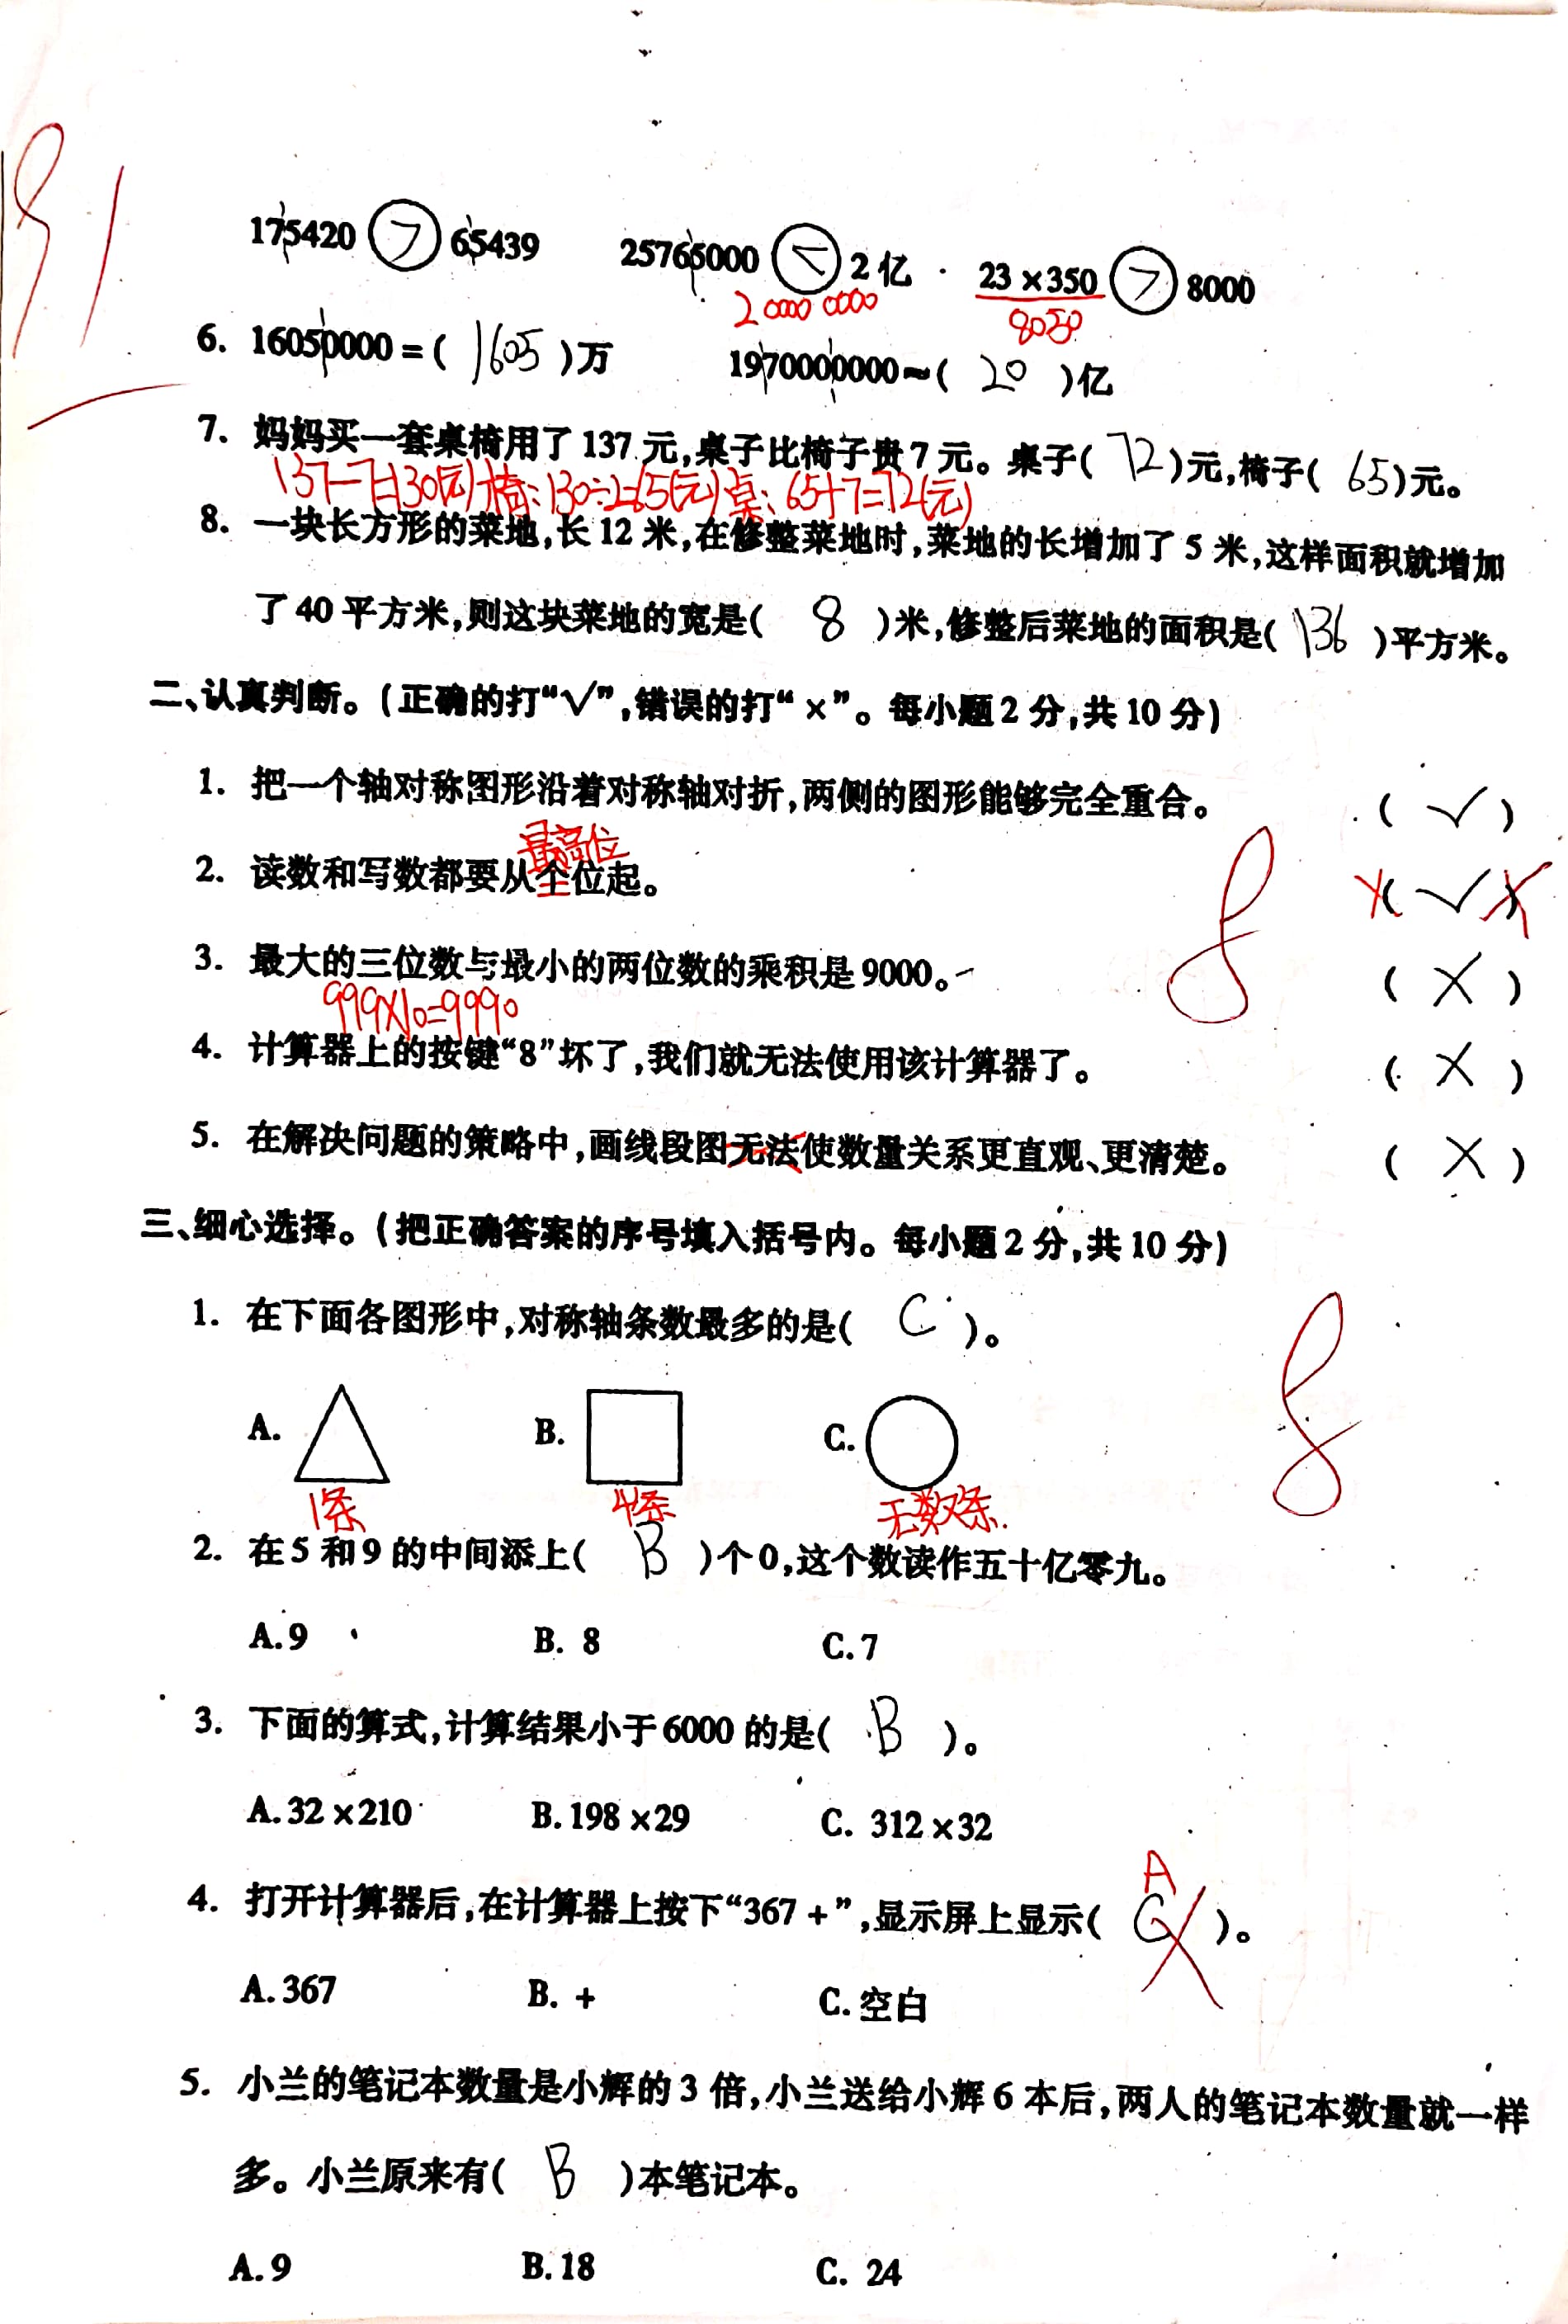 91
175420 > 65439 25765000 < 2亿 23×350 > 8000
200000000 8050
6. 16050000=( 1605 )万 1970000000≈( 20 )亿
7. 妈妈买一套桌椅用了137元,桌子比椅子贵7元。桌子( 72 )元,椅子( 65 )元。
137-7=130(元) 椅:130÷2=65(元) 桌:65+7=72(元)
8. 一块长方形的菜地,长12米,在修整菜地时,菜地的长增加了5米,这样面积就增加
了40平方米,则这块菜地的宽是( 8 )米,修整后菜地的面积是( 136 )平方米。
二、认真判断。(正确的打“√”,错误的打“×”。每小题2分,共10分)
1. 把一个轴对称图形沿着对称轴对折,两侧的图形能够完全重合。 ( √ )
最高位
2. 读数和写数都要从个位起。 ×( √ )×
8
3. 最大的三位数与最小的两位数的乘积是9000。 ( × )
999×10=9990
4. 计算器上的按键“8”坏了,我们就无法使用该计算器了。 ( × )
5. 在解决问题的策略中,画线段图无法使数量关系更直观、更清楚。 ( × )
三、细心选择。(把正确答案的序号填入括号内。每小题2分,共10分)
1. 在下面各图形中,对称轴条数最多的是( C )。
8
A. B. C.
1条 4条 无数条.
2. 在5和9的中间添上( B )个0,这个数读作五十亿零九。
A.9 B. 8 C.7
3. 下面的算式,计算结果小于6000的是( B )。
A.32×210 B.198×29 C. 312×32
A
4. 打开计算器后,在计算器上按下“367+”,显示屏上显示( C )。
A.367 B. + C.空白
5. 小兰的笔记本数量是小辉的3倍,小兰送给小辉6本后,两人的笔记本数量就一样
多。小兰原来有( B )本笔记本。
A.9 B.18 C. 24